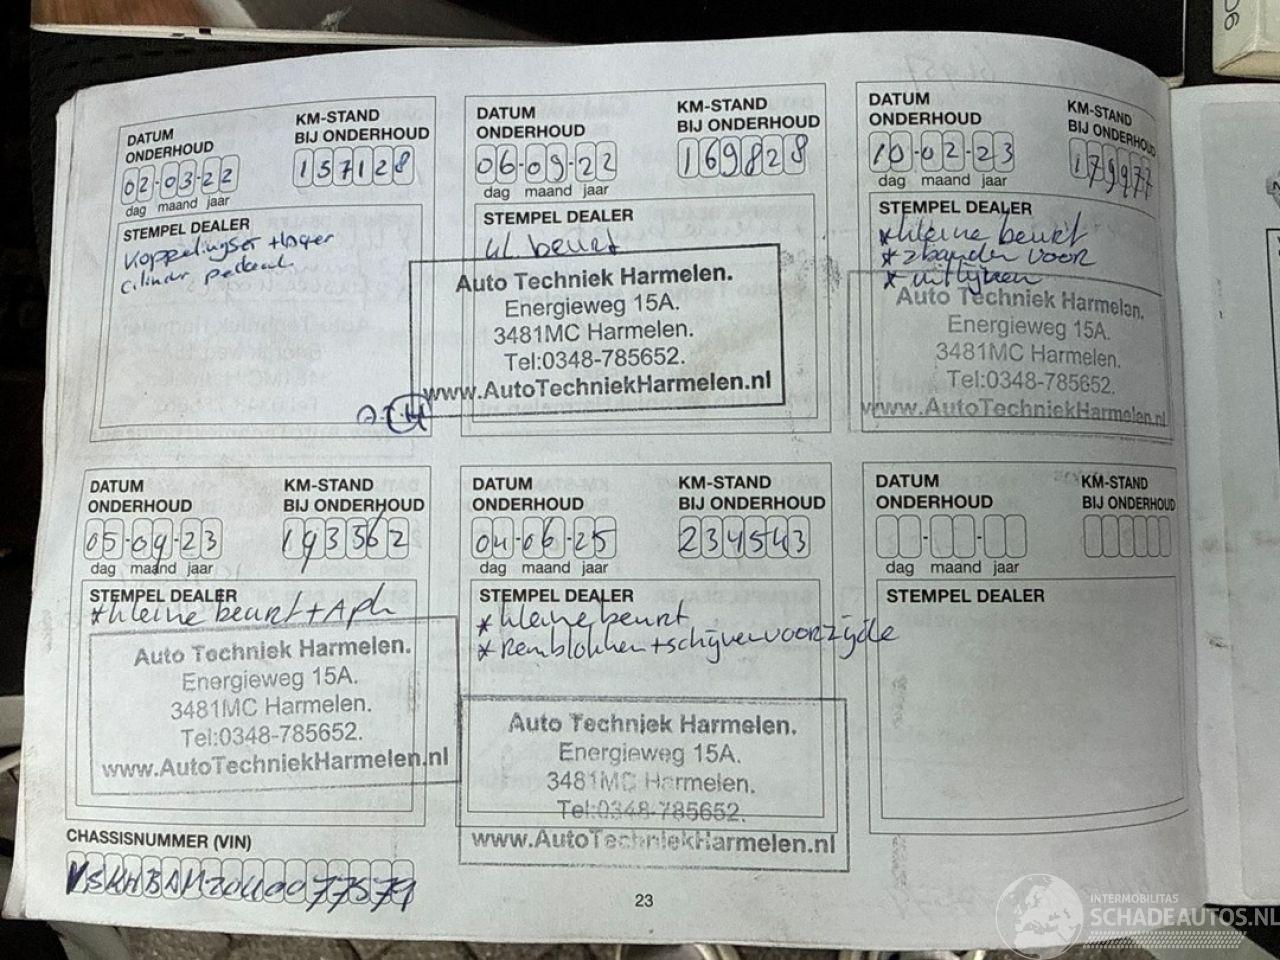 DATUM
ONDERHOUD
KM-STAND
BIJ ONDERHOUD
02-03-22
157128
dag maand jaar
STEMPEL DEALER
Koppelingset + lager
cilinder pedaal
DATUM
ONDERHOUD
KM-STAND
BIJ ONDERHOUD
06-09-22
169828
dag maand jaar
STEMPEL DEALER
kl. beurt
Auto Techniek Harmelen.
Energieweg 15A.
3481MC Harmelen.
Tel:0348-785652.
www.AutoTechniekHarmelen.nl
DATUM
ONDERHOUD
KM-STAND
BIJ ONDERHOUD
10-02-23
179977
dag maand jaar
STEMPEL DEALER
*kleine beurt
*2 banden voor
*uitlijnen
Auto Techniek Harmelen.
Energieweg 15A.
3481MC Harmelen.
Tel:0348-785652.
www.AutoTechniekHarmelen.nl
DATUM
ONDERHOUD
KM-STAND
BIJ ONDERHOUD
05-09-23
193562
dag maand jaar
STEMPEL DEALER
*kleine beurt + Apk
Auto Techniek Harmelen.
Energieweg 15A.
3481MC Harmelen.
Tel:0348-785652.
www.AutoTechniekHarmelen.nl
DATUM
ONDERHOUD
KM-STAND
BIJ ONDERHOUD
04-06-25
234543
dag maand jaar
STEMPEL DEALER
*kleine beurt
*Remblokken + schijven voorzijde
Auto Techniek Harmelen.
Energieweg 15A.
3481MC Harmelen.
Tel:0348-785652.
www.AutoTechniekHarmelen.nl
DATUM
ONDERHOUD
KM-STAND
BIJ ONDERHOUD
dag maand jaar
STEMPEL DEALER
CHASSISNUMMER (VIN)
23
INTERMOBILITAS
SCHADEAUTOS.NL